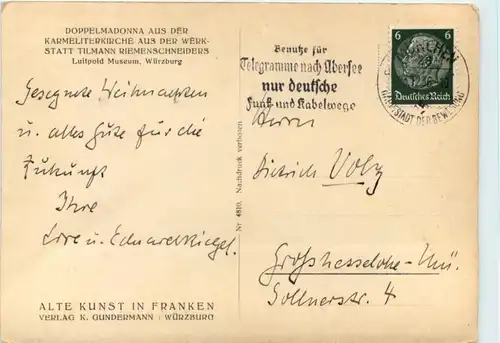 DOPPELMADONNA AUS DER
KARMELITERKIRCHE AUS DER WERK-
STATT TILMANN RIEMENSCHNEIDERS
Luitpold Museum, Würzburg
Gesegnete Weihnachten
u. alles Gute für die
Zukunft
Ihre
Lore u. Eduard
ALTE KUNST IN FRANKEN
VERLAG K. GUNDERMANN : WÜRZBURG
Nr 4810. Nachdruck verboten
Benutze für
Telegramme nach Übersee
nur deutsche
Funk- und Kabelwege
6 6
Deutsches Reich
MÜNCHEN
HAUPTSTADT DER BEWEGUNG
Herrn
Dietrich Volz
Großhesselohe-Mü.
Sollnerstr. 4